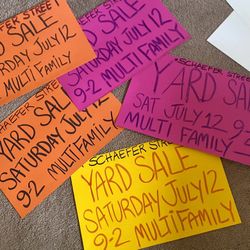 SCHAEFER STREET
YARD SALE
SATURDAY JULY 12
9-2 MULTI FAMILY
YARD SALE
SATURDAY JULY 12
9-2 MULTI FAMILY
SCHAEFER STREET
YARD SALE
SAT JULY 12
9-2
MULTI FAMILY
SCHAEFER STREET
YARD SALE
SATURDAY JULY 12
9-2 MULTI FAMILY
SCHAEFER STREET
YARD SALE
SATURDAY JULY 12
9-2 MULTI FAMILY